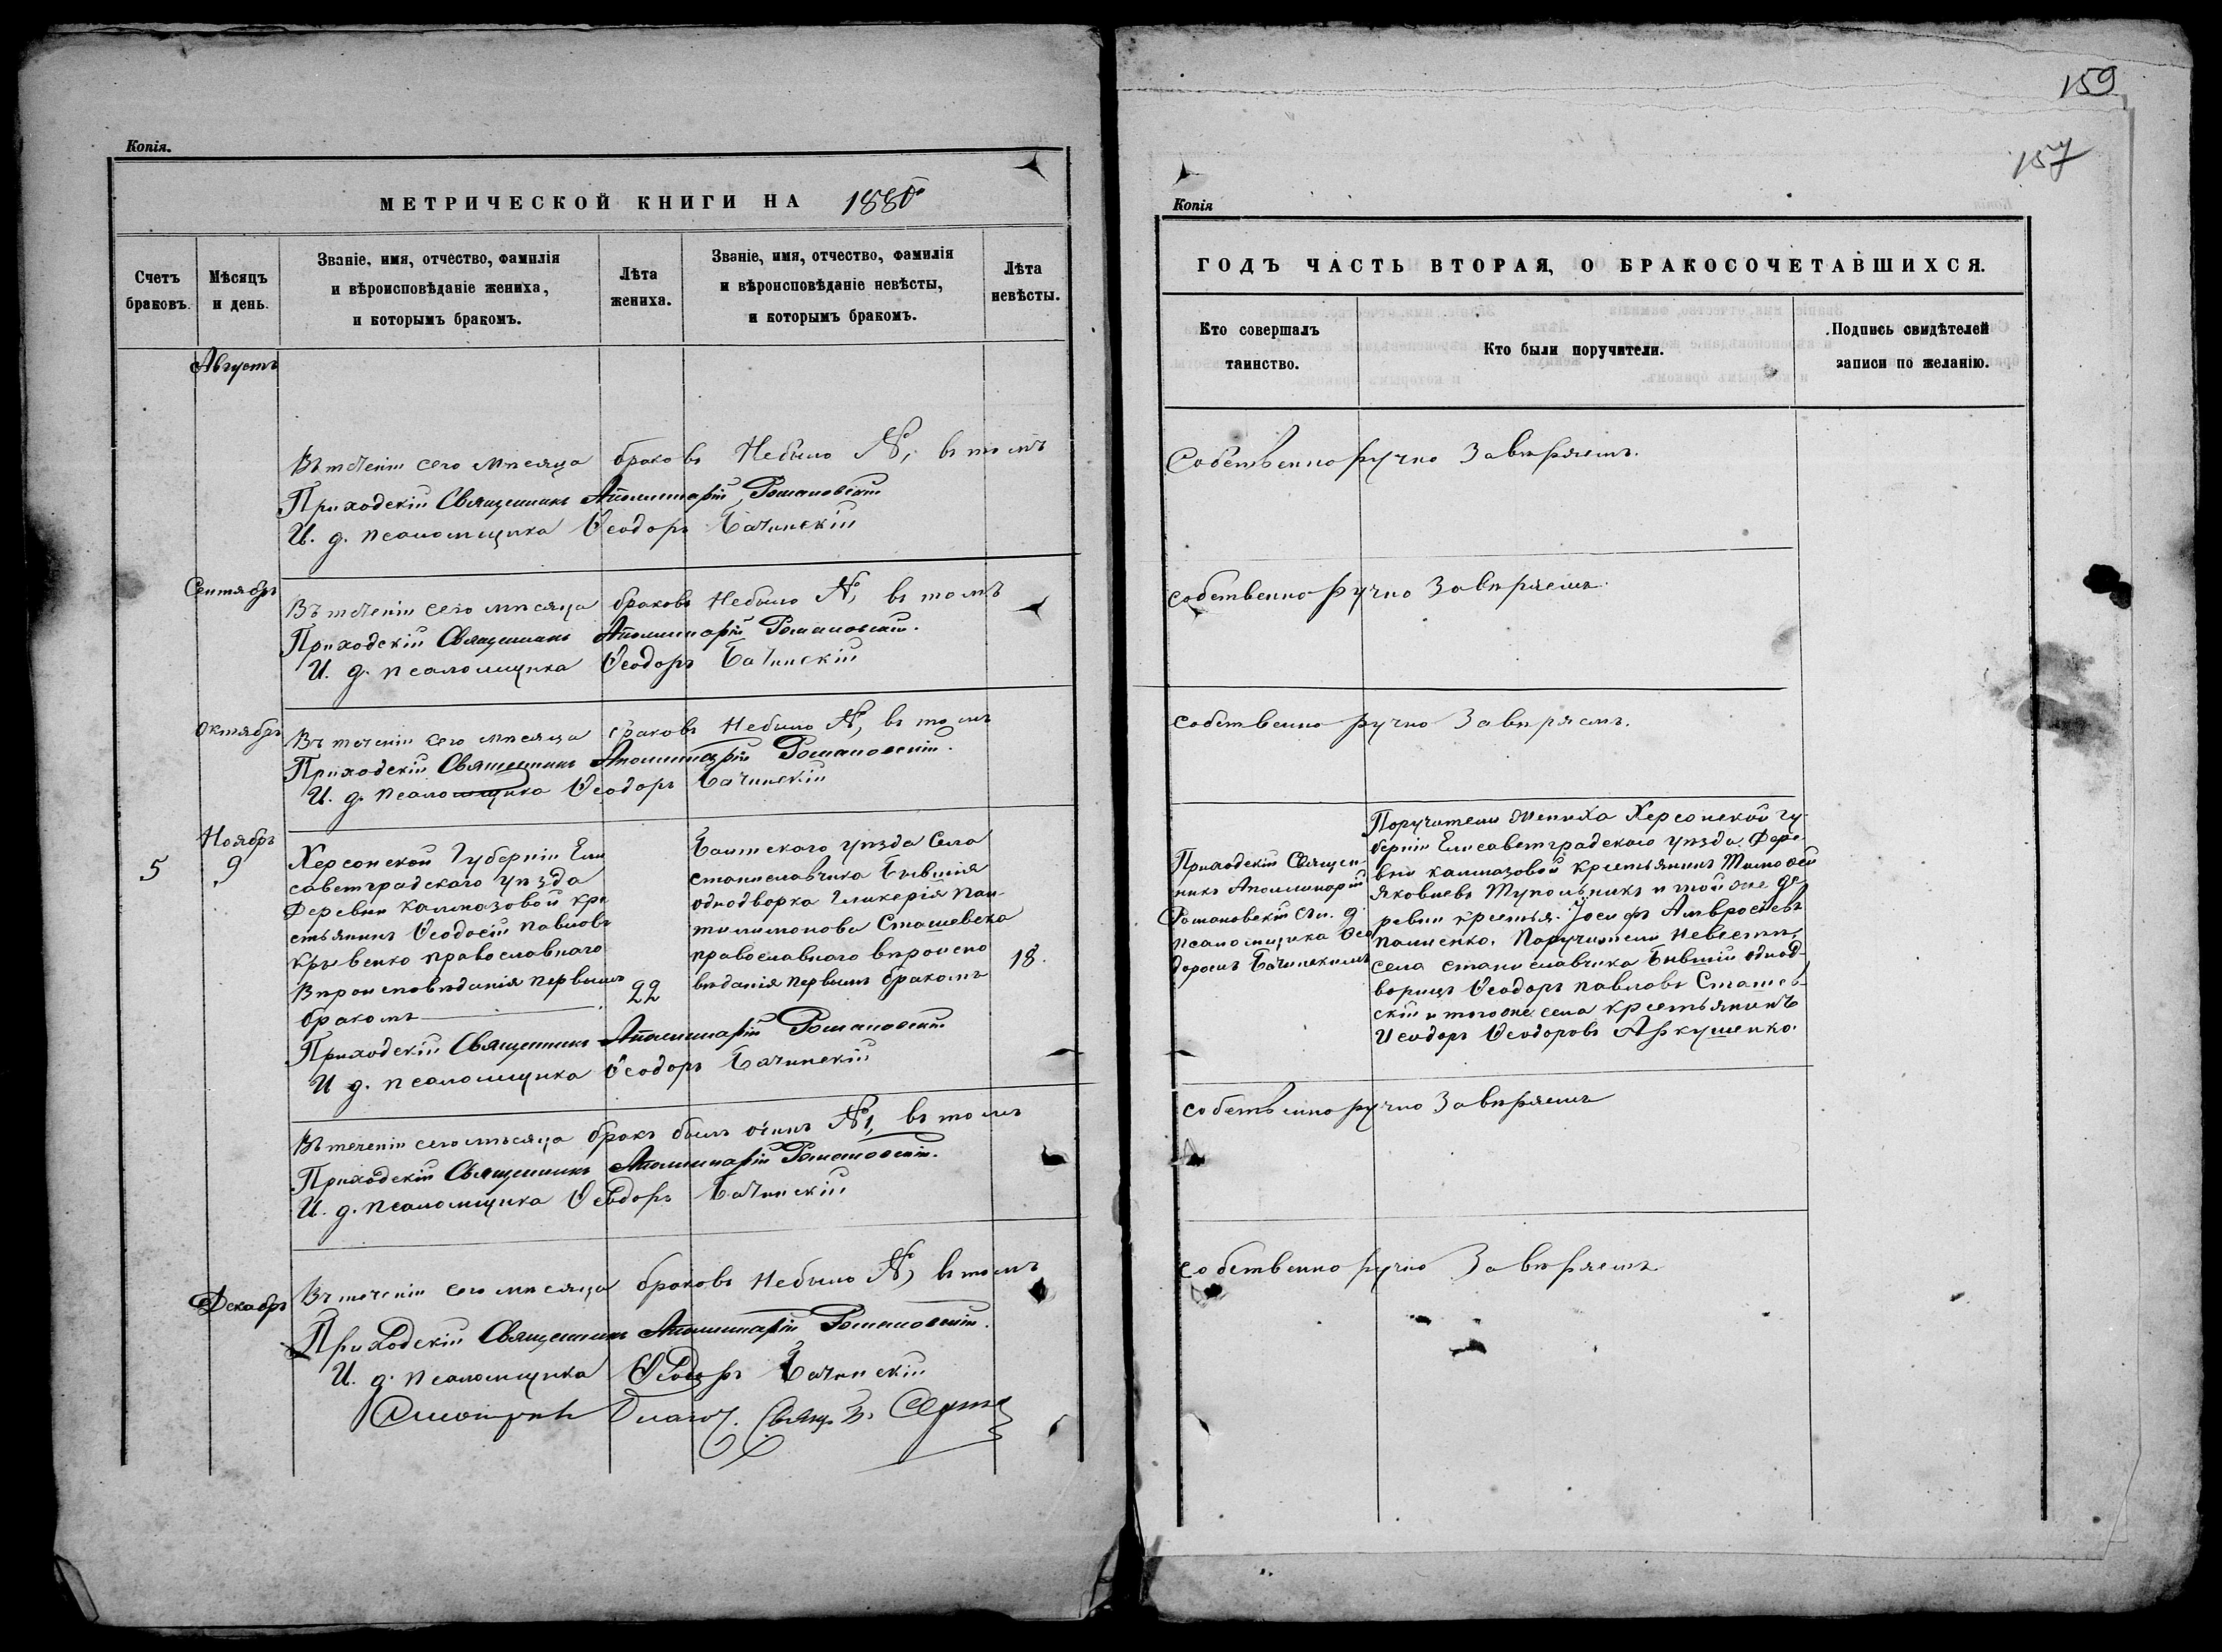 Копія.
МЕТРИЧЕСКОЙ КНИГИ НА 1880
Счетъ браковъ.
Мѣсяцъ и день.
Званіе, имя, отчество, фамилія
и вѣроисповѣданіе жениха,
и которымъ бракомъ.
Лѣта жениха.
Званіе, имя, отчество, фамилія
и вѣроисповѣданіе невѣсты,
и которымъ бракомъ.
Лѣта невѣсты.
Августъ
Въ теченіи сего мѣсяца браковъ Небыло №, въ томъ
Приходскій Священникъ Аполлинарій Романовскій
И. д. псаломщика Ѳеодоръ Бачинскій
Сентябрь
Въ теченіи сего мѣсяца браковъ Небыло №, въ томъ
Приходскій Священникъ Аполлинарій Романовскій.
И. д. псаломщика Ѳеодоръ Бачинскій
Октябрь
Въ теченіи сего мѣсяца браковъ Небыло №, въ томъ
Приходскій Священникъ Аполлинарій Романовскій.
И. д. псаломщика Ѳеодоръ Бачинскій
Ноябрь
5
9
Херсонской Губерніи Ели
саветградскаго уѣзда
Деревни Калмазовой кре
стьянинъ Ѳеодосій Павловъ
Кривенко православнаго
Вѣроисповѣданія первымъ
бракомъ
22
Балтскаго уѣзда Села
станиславчика Бывшія
однодворка Гликерія Пан
тилимонова Сташевска
православнаго вѣроиспо
вѣданія первымъ бракомъ
18.
Приходскій Священникъ Аполлинарій Романовскій
И д. псаломщика Ѳеодоръ Бачинскій
Въ теченіи сего мѣсяца бракъ былъ одинъ №1, въ томъ
Приходскій Священникъ Аполлинарій Романовскій.
И. д. псаломщика Ѳеодоръ Бачинскій
Декабрь
Въ теченіи сего мѣсяца браковъ Небыло №, въ томъ
Приходскій Священникъ Аполлинарій Романовскій.
И. д. псаломщика Ѳеодоръ Бачинскій
159
157
Копія
ГОДЪ ЧАСТЬ ВТОРАЯ, О БРАКОСОЧЕТАВШИХСЯ.
Кто совершалъ таинство.
Кто были поручители.
Подпись свидѣтелей записи по желанію.
Собственноручно Завѣряемъ.
собственноручно Завѣряемъ.
собственно ручно Завѣряемъ.
Приходскій Священ
никъ Аполлинарій
Романовскій съ и. д.
псаломщика Ѳео
доромъ Бачинскимъ
Поручители Жениха Херсонской гу-
берніи Елисаветградскаго уѣзда Дере-
вни калмазовой Крестьянинъ Тимоѳей
Яковлевъ Тупольникъ и той же де-
ревни крестья. Іосифъ Амвросіевъ
Палиенко. Поручители Невесты,
села станиславчика Бывшій однод-
ворецъ Ѳеодоръ Павловъ Сташев-
скій и того же села крестьянинъ
Исидоръ Ѳеодоровъ Аркушенко.
собственноручно Завѣряемъ
собственно ручно Завѣряемъ